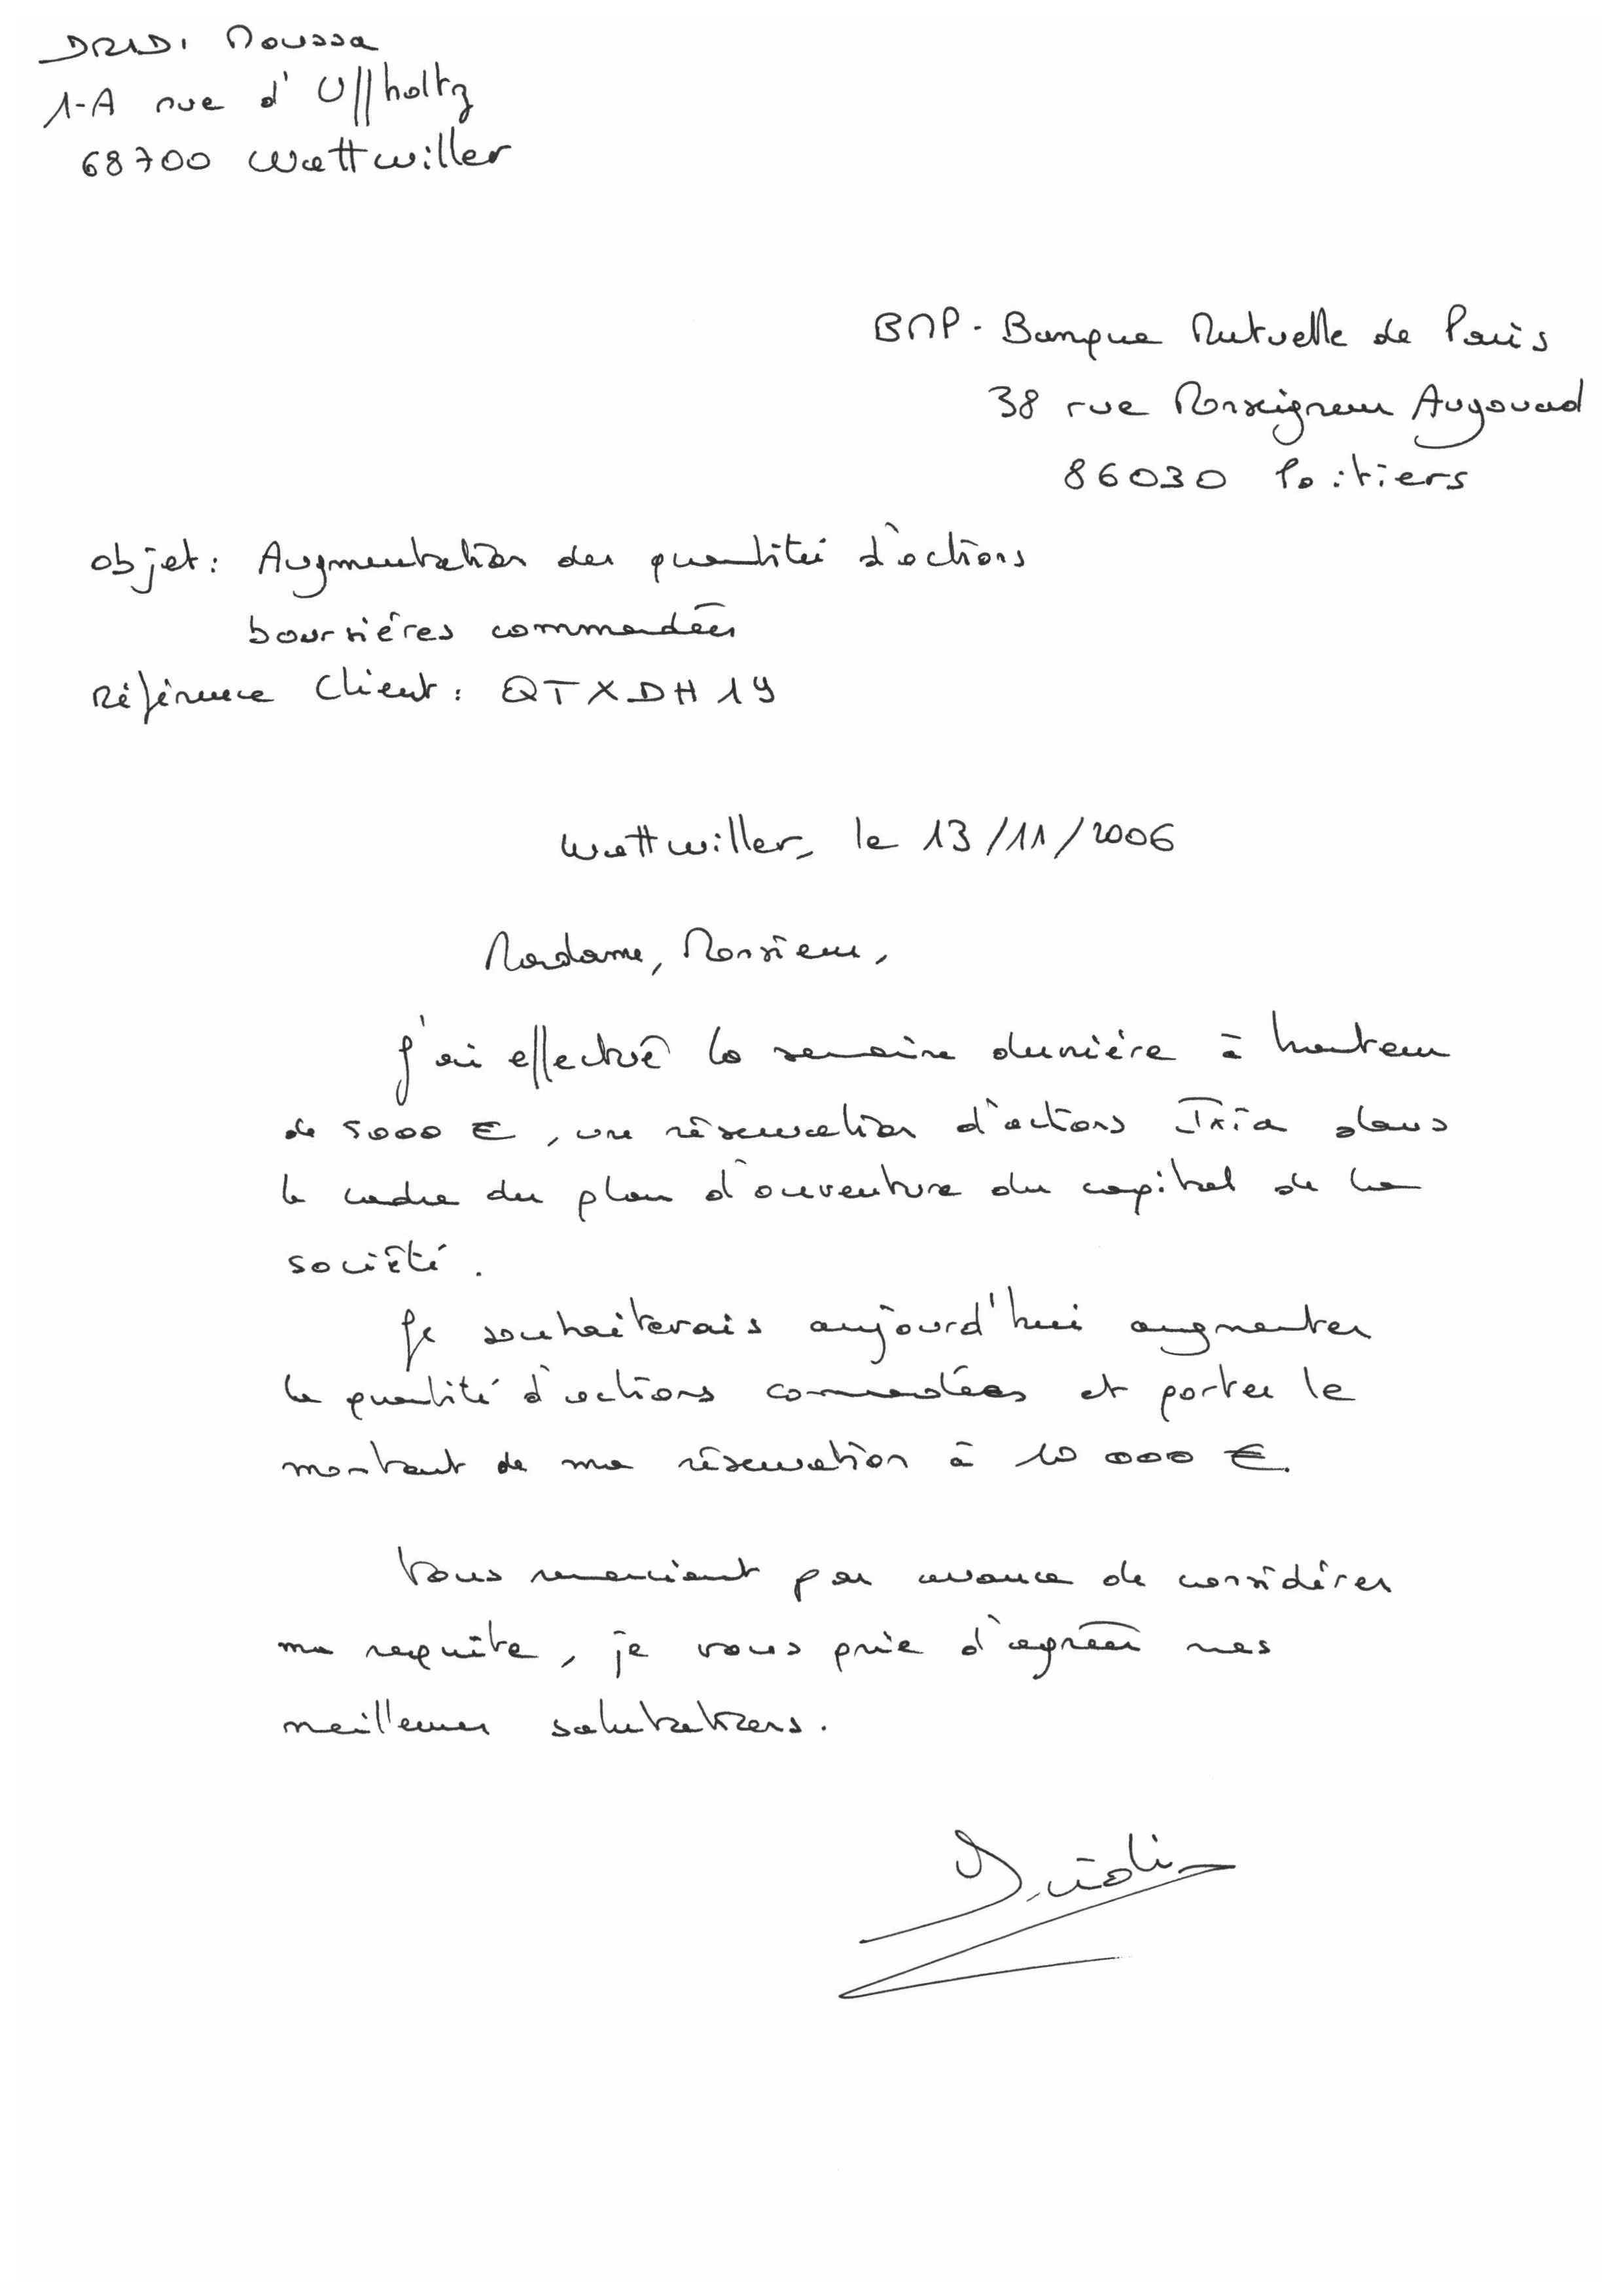 DRIDI Moussa
1-A rue d'Uffholtz
68700 Wattwiller
BMP - Banque Mutuelle de Paris
38 rue Monseigneur Augouard
86030 Poitiers
Objet : Augmentation des quantités d'actions
boursières commandées
Référence Client : QTXDH19
Wattwiller, le 13/11/2006
Madame, Monsieur,
J'ai effectué la semaine dernière à hauteur
de 5000 €, une réservation d'actions Ixia dans
le cadre du plan d'ouverture du capital de la
société.
Je souhaiterais aujourd'hui augmenter
la quantité d'actions commandées et porter le
montant de ma réservation à 10 000 €.
Vous remerciant par avance de considérer
ma requête, je vous prie d'agréer mes
meilleures salutations.
Dridi